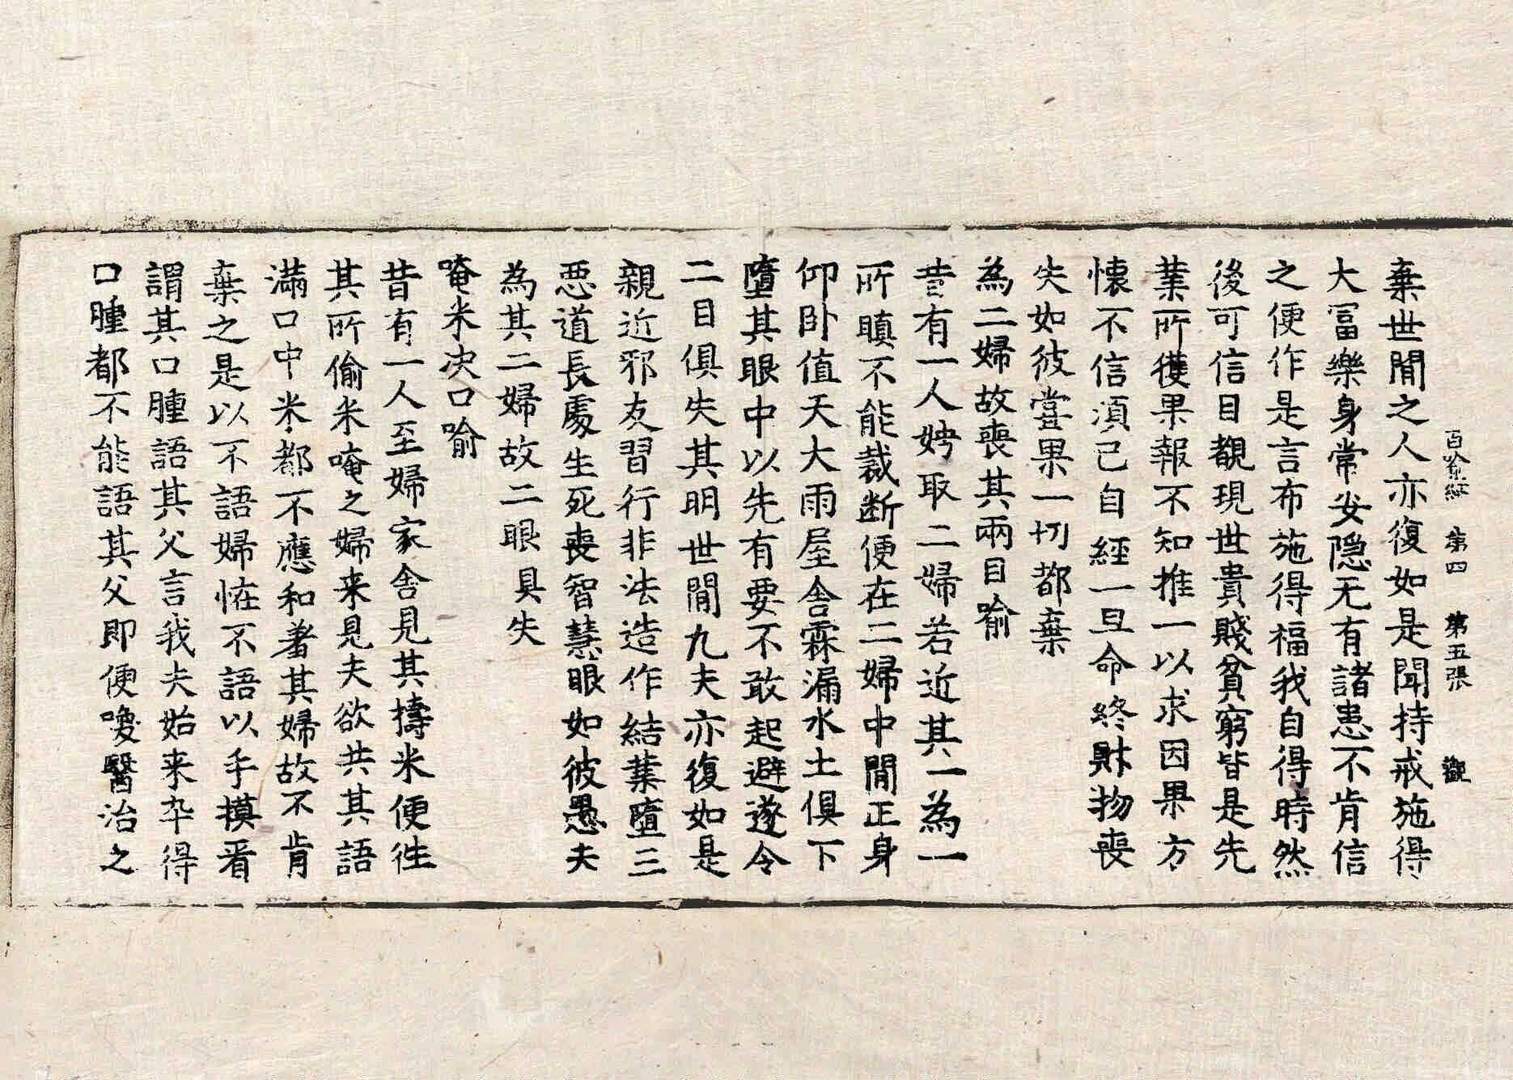 百喻經 第四 第五張 觀
棄世間之人亦復如是聞持戒施得
大冨樂身常安隠无有諸患不肯信
之便作是言布施得福我自得時然
後可信目覩現世貴賤貧窮皆是先
業所獲果報不知推一以求因果方
懷不信湏已自經一旦命終財物喪
失如彼甞果一切都棄
為二婦故喪其兩目喻
昔有一人娉取二婦若近其一為一
所瞋不能裁断便在二婦中間正身
仰卧值天大雨屋舍霖漏水土俱下
墮其眼中以先有要不敢起避遂令
二目俱失其明世間九夫亦復如是
親近邪友習行非法造作結業墮三
惡道長處生死喪智慧眼如彼愚夫
為其二婦故二眼具失
唵米决口喻
昔有一人至婦家舍見其擣米便徃
其所偷米唵之婦来見夫欲共其語
滿口中米都不應和著其婦故不肯
棄之是以不語婦恠不語以手摸看
謂其口腫語其父言我夫始来卒得
口腫都不能語其父即便喚醫治之